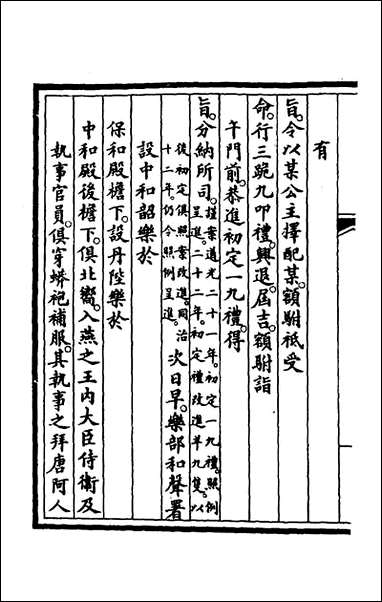 有
旨。令以某公主擇配某。額駙祇受
命。行三跪九叩禮。興退。屆吉。額駙詣
午門前。恭進初定一九禮。得
旨。分納所司。
謹案道光二十一年。初定一九禮。照例
呈進。二十二年。初定禮改進羊九隻。以
後初定俱照案改進。同治
十二年。仍令照例呈進。
次日早。樂部和聲署
設中和韶樂於
保和殿檐下。設丹陛樂於
中和殿後檐下。俱北嚮。入燕之王內大臣侍衛及
執事官員。俱穿蟒袍補服。其執事之拜唐阿人